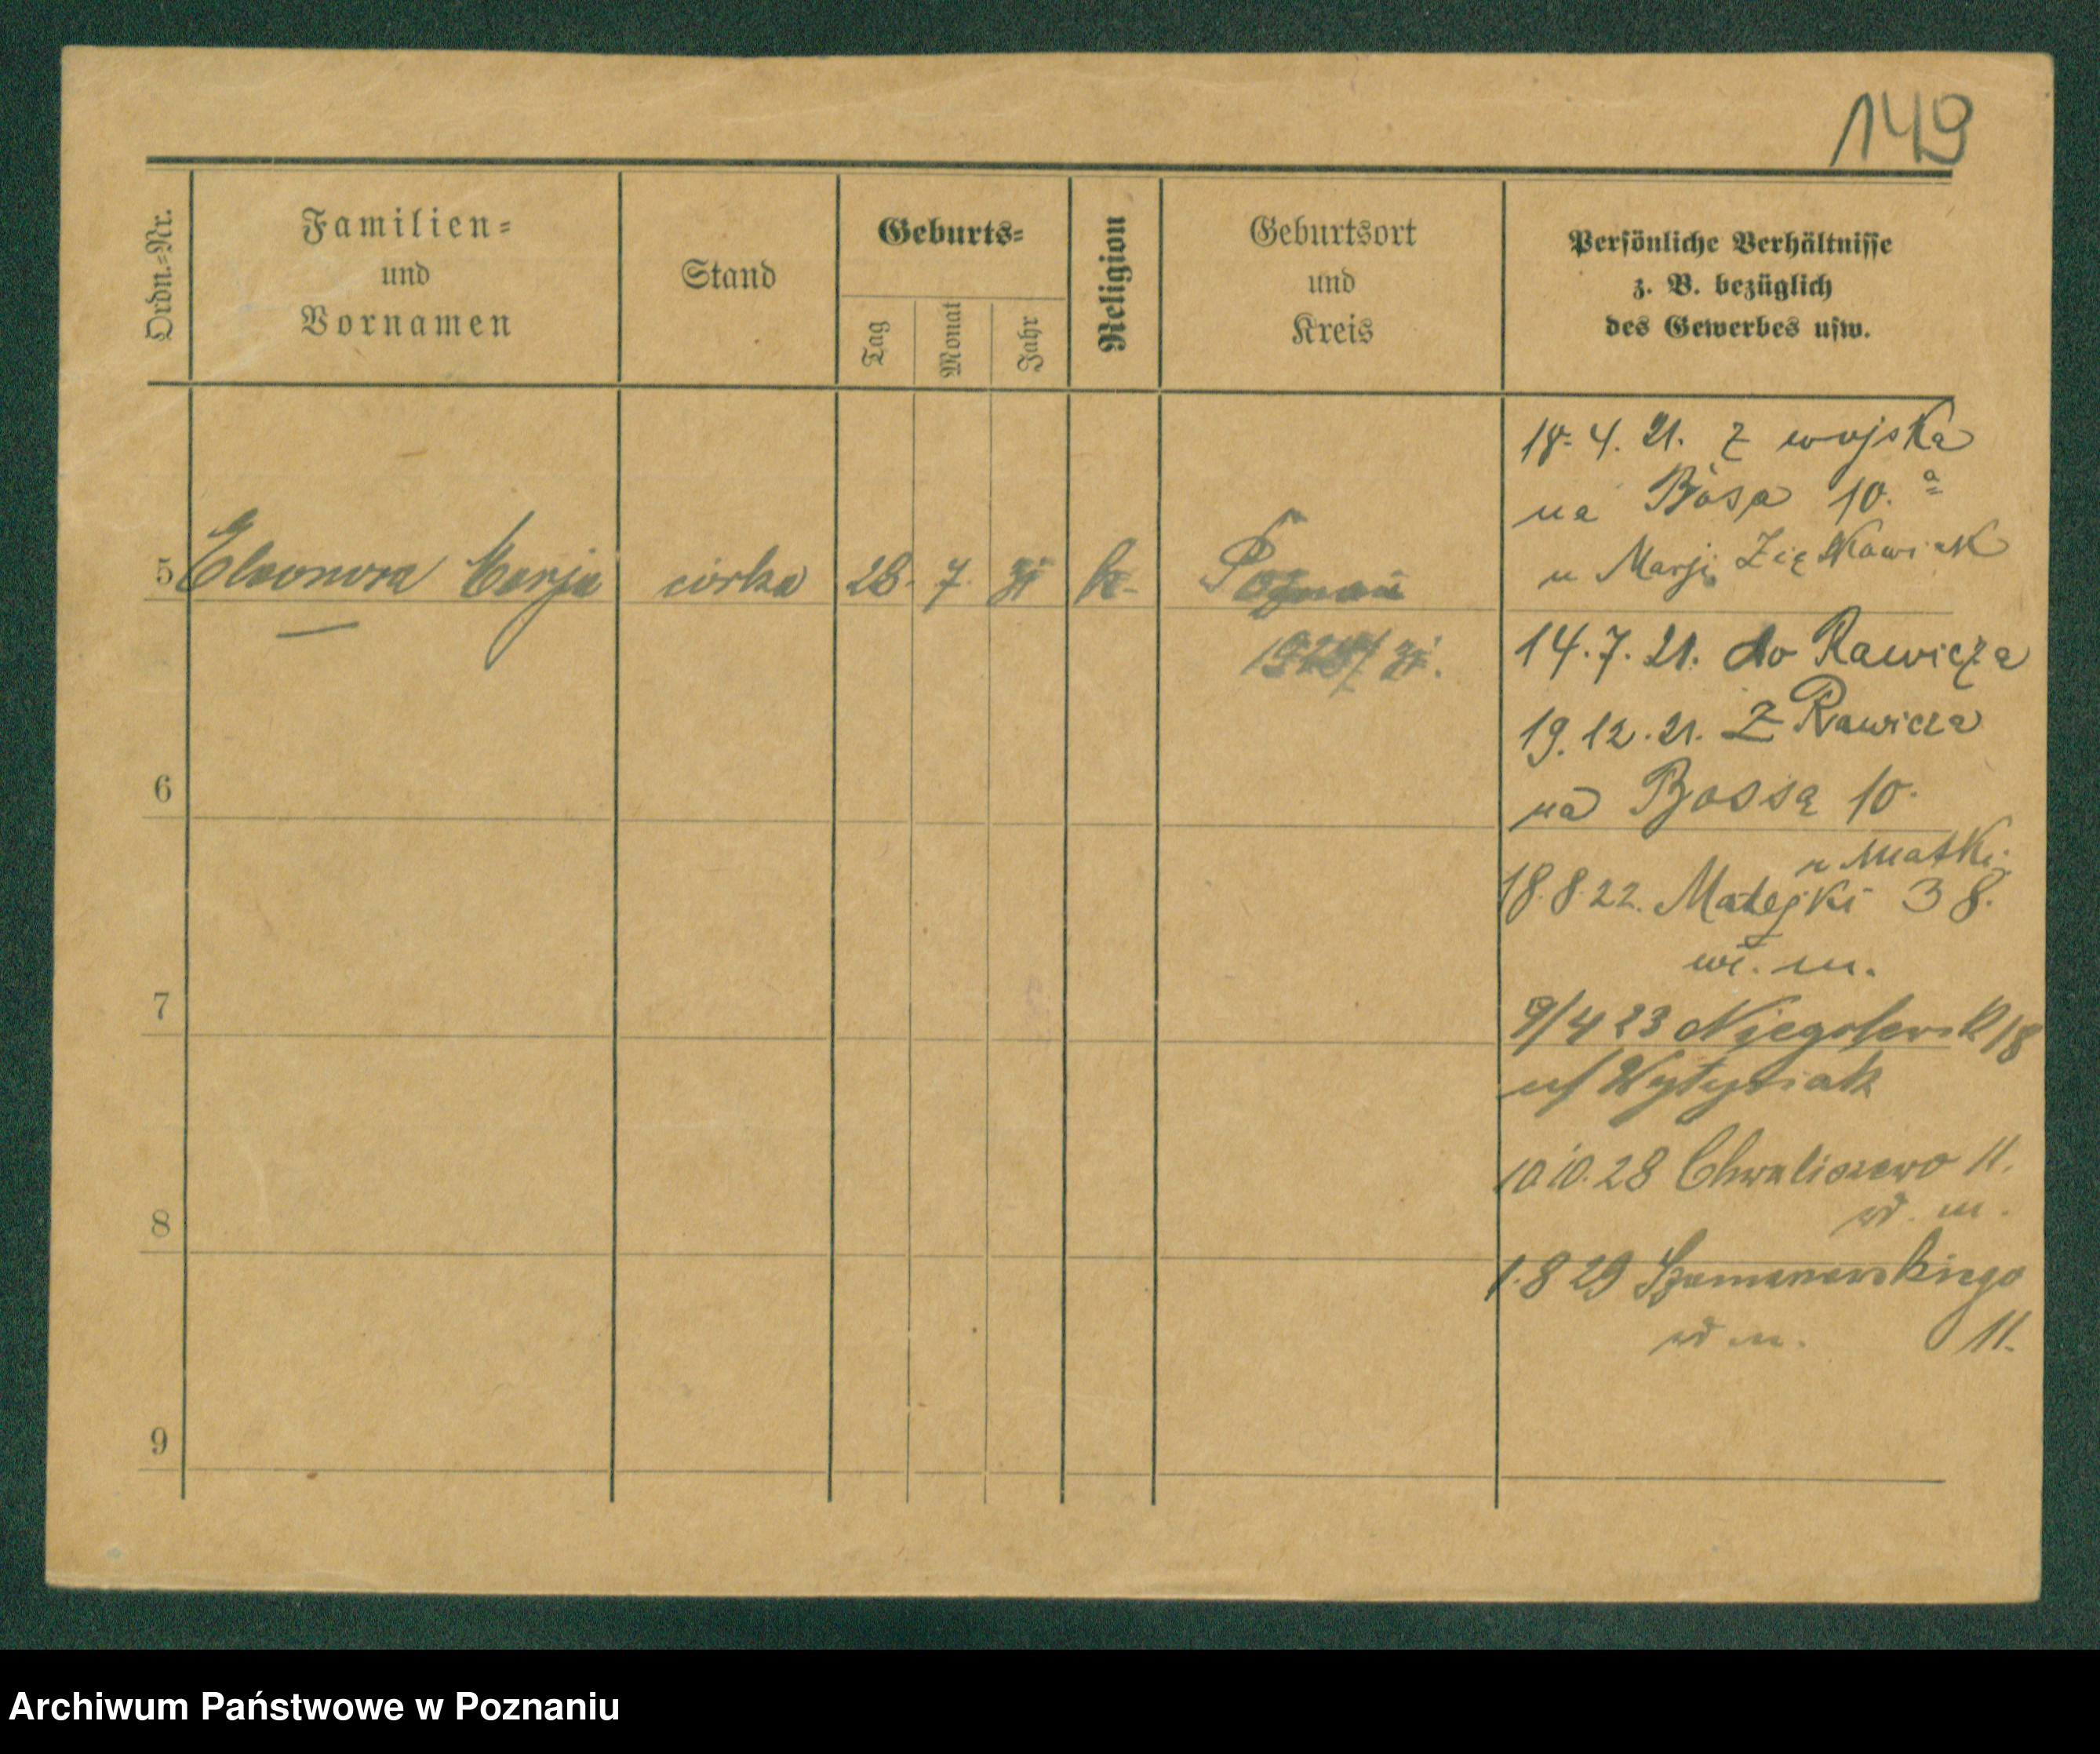 149
Ordn.=Nr.
Familien=
und
Vornamen
Stand
Geburts=
Tag
Monat
Jahr
Religion
Geburtsort
und
Kreis
Persönliche Verhältnisse
z. B. bezüglich
des Gewerbes usw.
5 Eleonora Marja córka 28. 7. 31 k. Poznań
31.
18. 4. 21. z wojska
na Bósa 10. a
u Marji
14. 7. 21. do Rawicza
19. 12. 21. Z Rawicza
na Bossa 10.
u Matki
18. 8. 22. Matejki 38.
w. m.
9/4 23 Niegolewsk 18
u/
10 10. 28 Chwaliszewo 11.
w. m.
1. 8 29 Szamanowskiego
11.
w m.
6
7
8
9
Archiwum Państwowe w Poznaniu